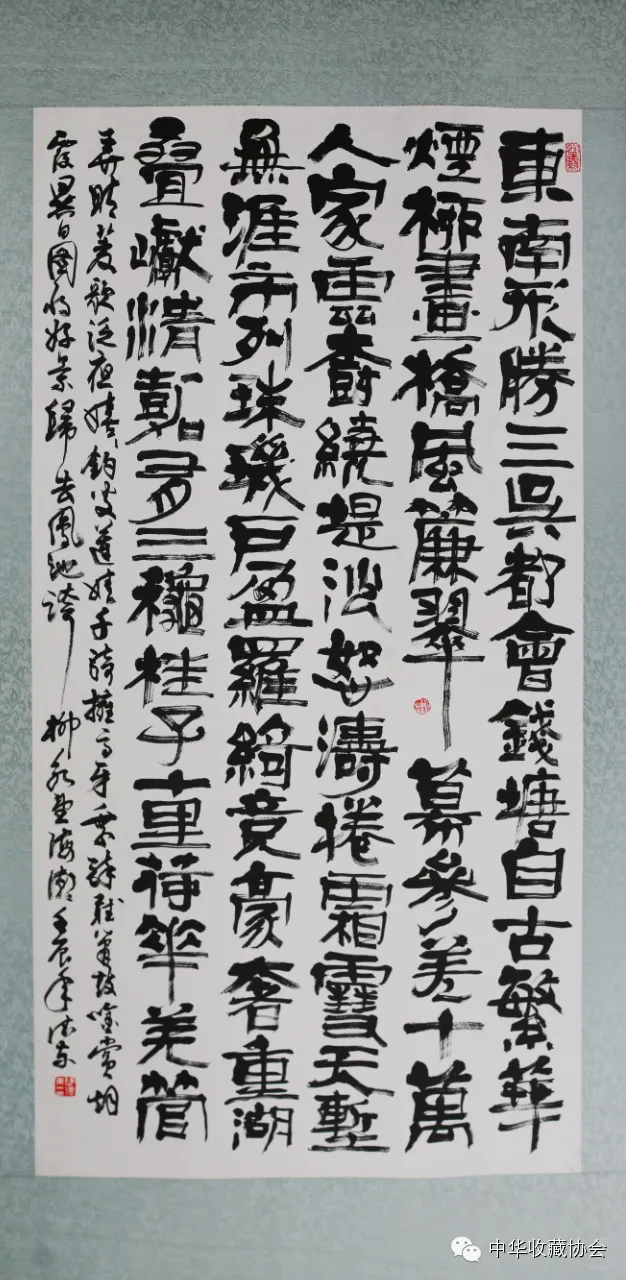 東南形勝三吳都會錢塘自古繁華
煙柳畫橋風簾翠幕參差十萬
人家雲樹繞堤沙怒濤捲霜雪天塹
無涯市列珠璣戶盈羅綺競豪奢重湖
疊巘清嘉有三秋桂子十里荷華羌管
弄晴菱歌泛夜嬉嬉釣叟蓮娃千騎擁高牙乘醉聽簫鼓吟賞煙
霞異日圖將好景歸去鳳池誇 柳永望海潮壬辰年
中华收藏协会